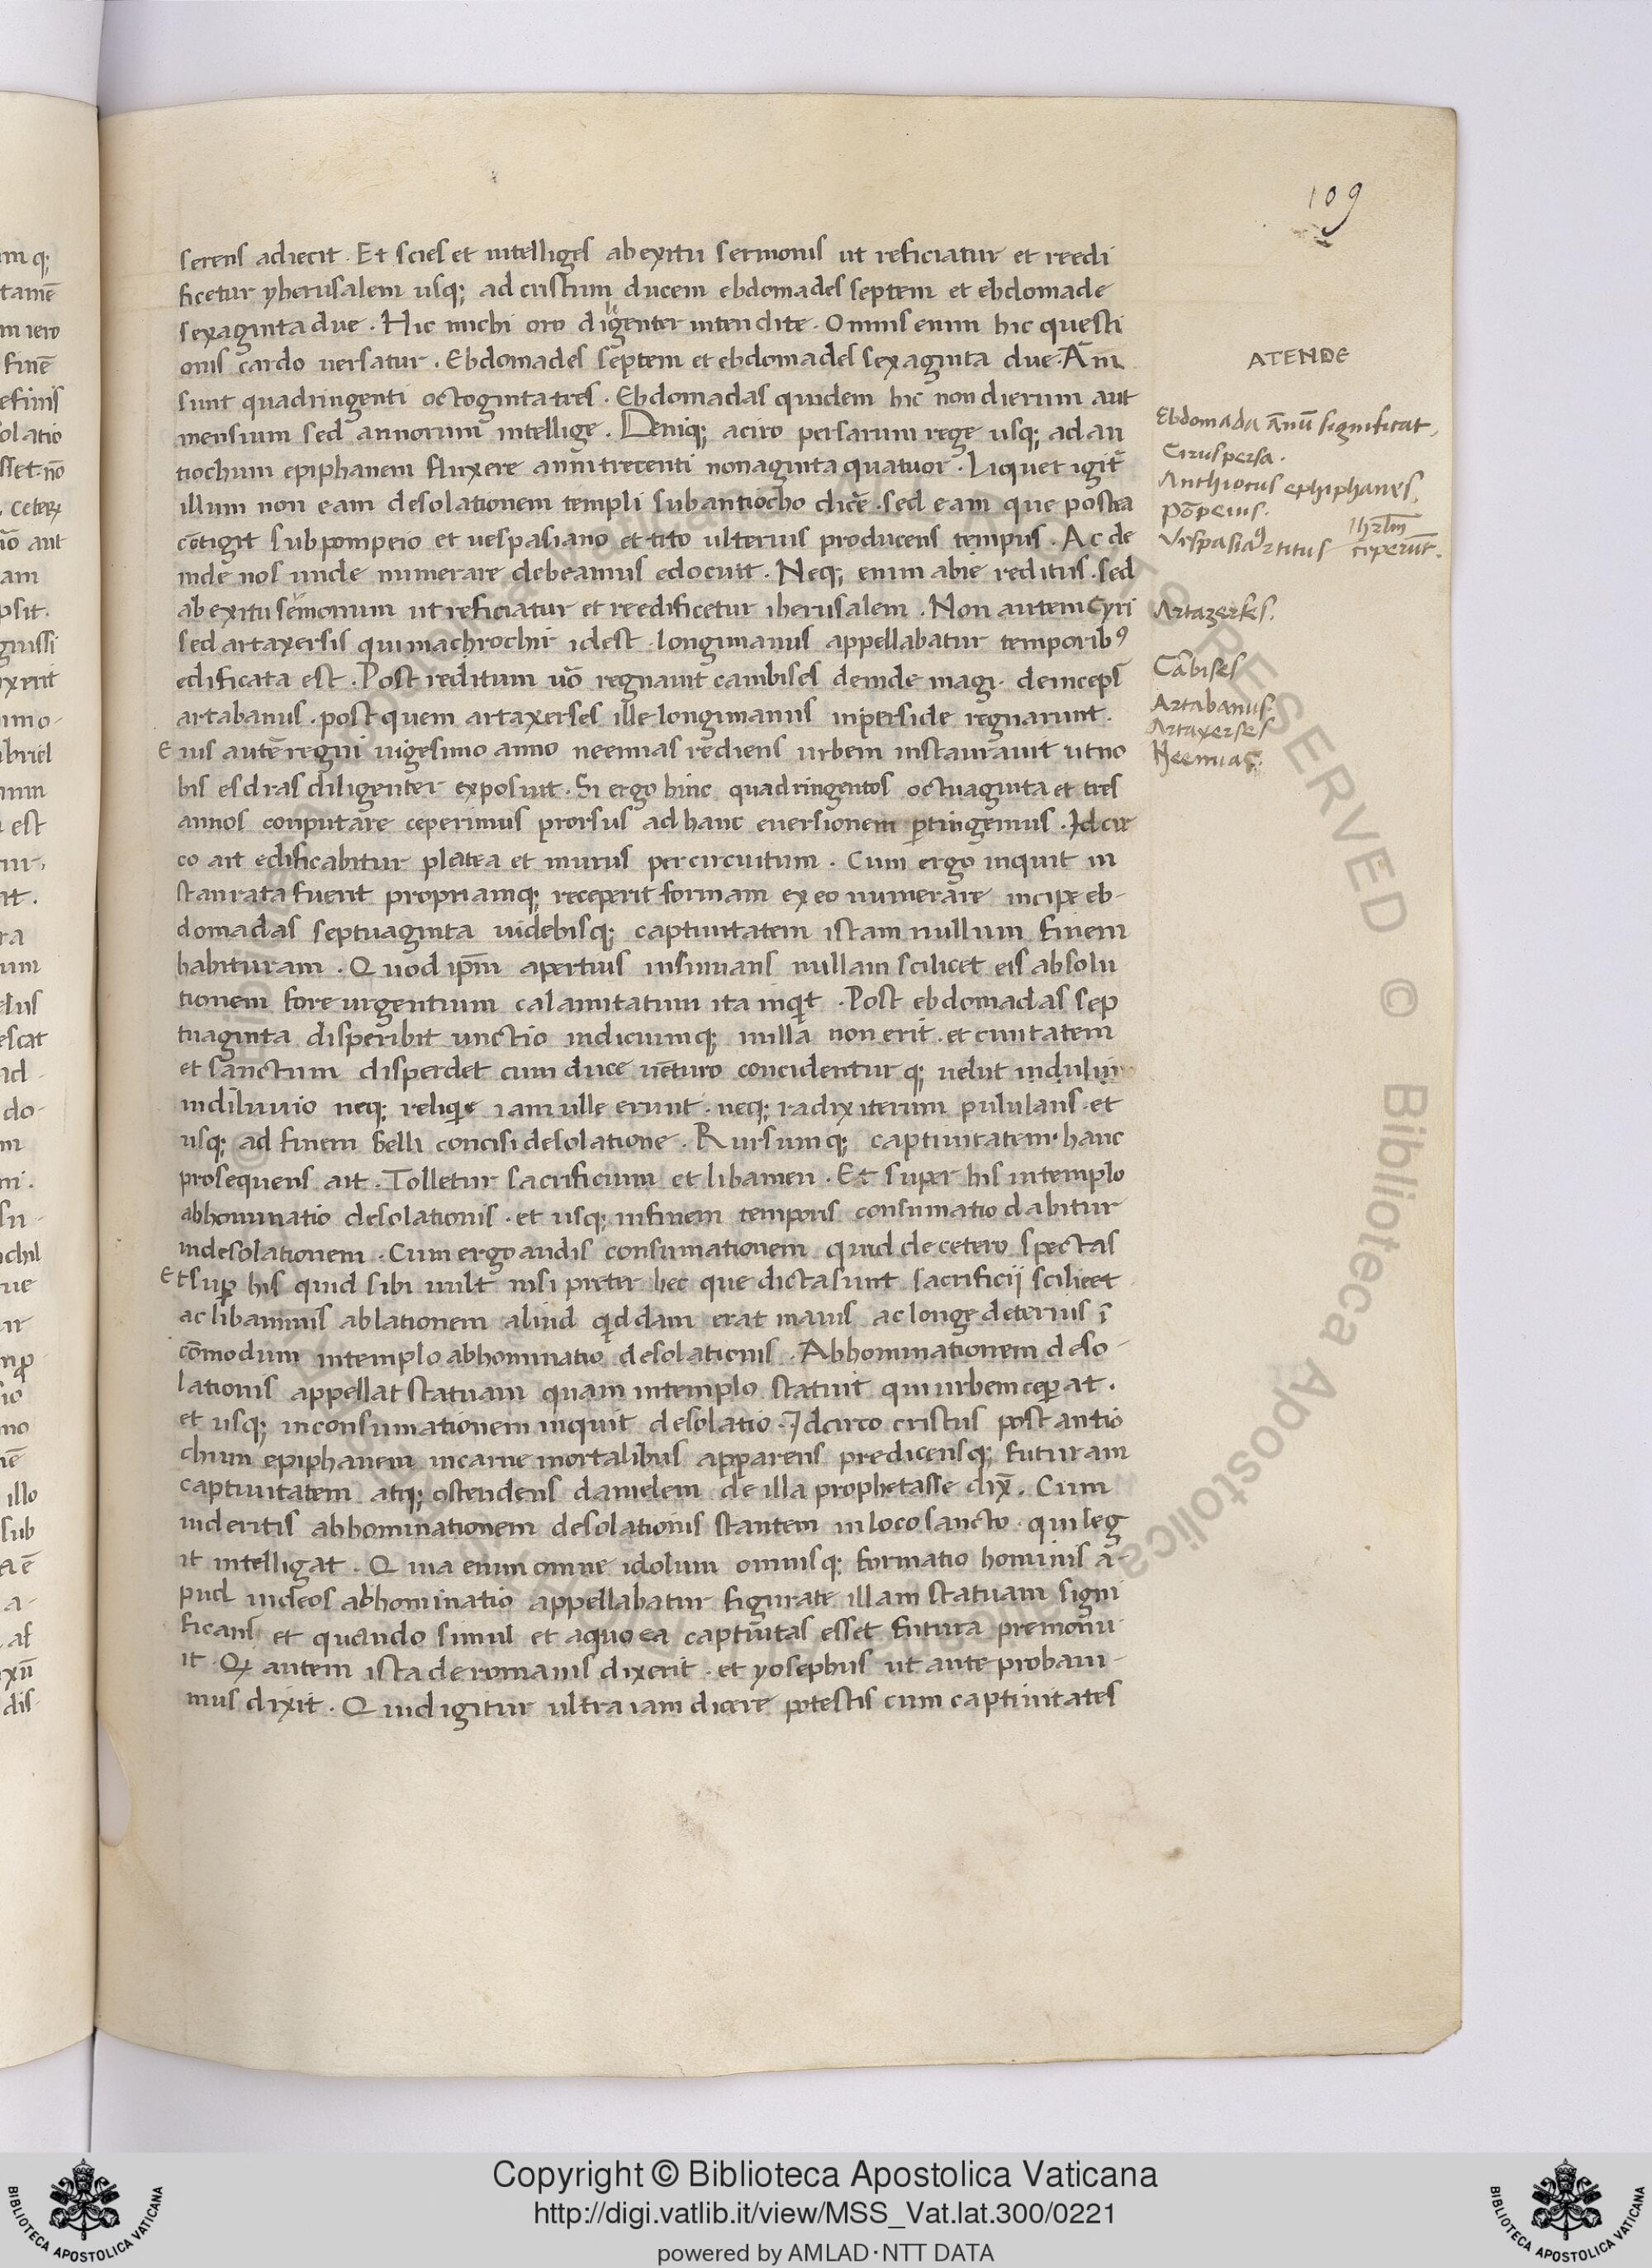 109
serens adiecit. Et scies et intelliges ab exitu sermonis ut reficiatur et reedi
ficetur yherusalem usq; ad cristum ducem ebdomades septem et ebdomade
sexaginta due. Hic michi oro diligenter intendite. Omnis enim hic questi
onis cardo uersatur. Ebdomades septem et ebdomades sexaginta due. An̄i
sunt quadringenti octoginta tres. Ebdomadas quidem hic non dierum aut
mensium sed annorum intellige. Deniq; a ciro persarum rege usq; ad an
tiochum epiphanem fluxere anni trecenti nonaginta quatuor. Liquet igit̄
illum non eam desolationem templi sub antiocho dicē. sed eam que postea
cōtigit sub pompeio et uespasiano et tito ulterius producens tempus. Ac de
inde nos unde numerare debeamus edocuit. Neq; enim a bie reditus. sed
ab exitu sermonum ut reficiatur et reedificetur iherusalem. Non autem Cyri
sed artaxersis qui machrochir idest longimanus appellabatur temporibꝰ
edificata est. Post reditum uō regnauit cambises deinde magi. deinceps
artabanus. post quem artaxerses ille longimanus in perside regnarunt.
Eius autē regni uigesimo anno neemias rediens urbem instaurauit ut no
bis esdras diligenter exposuit. Si ergo hinc quadringentos octuaginta et tres
annos conputare ceperimus prorsus ad hanc euersionem ꝑtingemus. Idcir
co ait edificabitur platea et murus per circuitum. Cum ergo inquit in
staurata fuerit propriamq; receperit formam ex eo numerare incipe eb-
domadas septuaginta uidebisq; captiuitatem istam nullum finem
habituram. Quod ip̄m apertius insinuans nullam scilicet eis absolu
tionem fore urgentium calamitatum ita inqit. Post ebdomadas sep
tuaginta disperibit unctio iudiciumq; in illa non erit. et ciuitatem
et sanctum disperdet cum duce uēturo concidentur q; uelut in dului
in diluuio neq; reliquie iam ulle erunt. neq; radix iterum pululans. et
usq; ad finem belli concisi desolatione. Rursumq; captiuitatem hanc
prosequens ait. Tolletur sacrificium et libamen. Et super his in templo
abhominatio desolationis. et usq; in finem temporis consumatio dabitur
in desolationem. Cum ergo audis consumationem quid de cetero spectas
Et suꝑ his quid sibi uult nisi preter hec que dicta sunt sacrificij scilicet
ac libaminis ablationem aliud qiddam erat maius ac longe deterius ī
cōmodum in templo abhominatio desolationis. Abhominationem deso-
lationis appellat statuam quam in templo statuit qui urbem ceꝑat.
et usq; in consumationem inquit desolatio. Idcirco cristus post antio
chum epiphanem in carne mortalibus apparens predicensq; futuram
captiuitatem atq; ostendens danielem de illa prophetasse dix̄. Cum
uideritis abhominationem desolationis stantem in loco sancto. qui leg
it intelligat. Quia enim omne idolum omnisq; formatio hominis a-
pud iudeos abhominatio appellabatur figurate illam statuam signi
ficans et quando simul et a quo ea captiuitas esset futura premonu
it. Qꝫ autem ista de romanis dixerit. et yosephus ut ante probaui-
mus dixit. Quid igitur ultra iam dicere potestis cum captiuitates
ATENDE
Ebdomada ānū significat,
Cirus persa.
Anthiocus ephiphanes.
Pōpeius.
Vespasiāꝰ ⁊ titus ihrlm̄ ceperūt.
Artazerkses.
Cābises
Artabanus.
Artaxerses
Neemias.
Copyright © Biblioteca Apostolica Vaticana
http://digi.vatlib.it/view/MSS_Vat.lat.300/0221
powered by AMLAD·NTT DATA
BIBLIOTECA APOSTOLICA VATICANA
BIBLIOTECA APOSTOLICA VATICANA